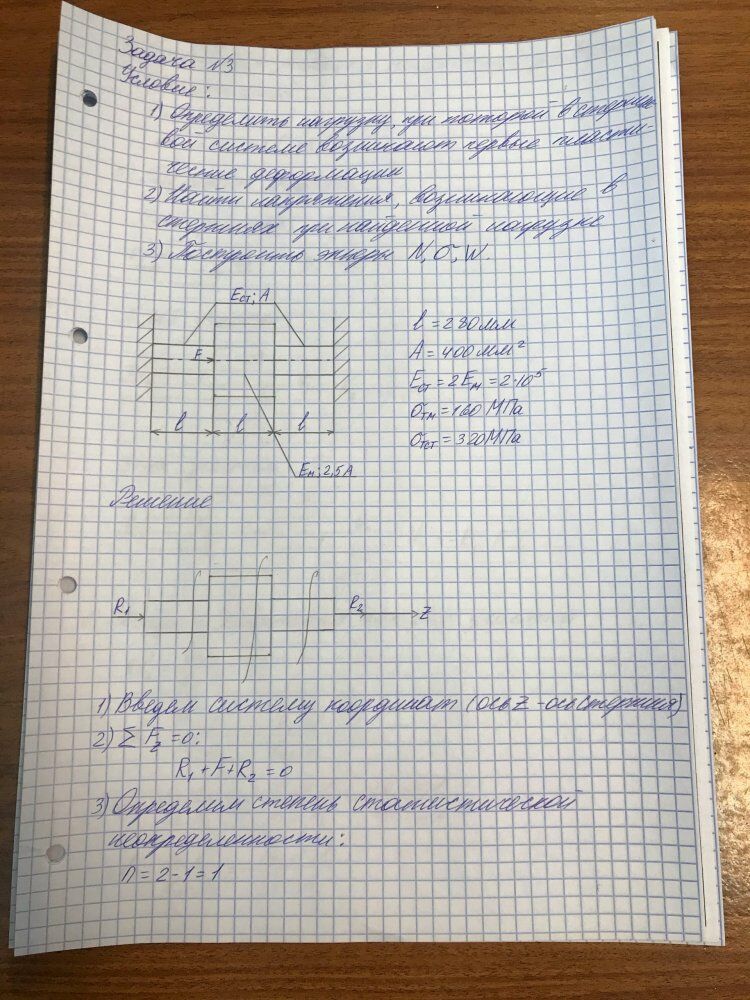 Задача №3
Условие:
1) Определить нагрузку, при которой в стержне-
вой системе возникают первые пласти-
ческие деформации
2) Найти напряжения, возникающие в
стержнях при найденной нагрузке
3) Построить эпюры N, σ, W.
Eст; A
F
l l l
Eм; 2,5A
l = 280 мм
A = 400 мм²
Eст = 2Eм = 2·10⁵
σтм = 160 МПа
σтст = 320 МПа
Решение
R₁ R₂ Z
1) Введем систему координат (ось Z - ось стержня)
2) Σ F_z = 0:
R₁ + F + R₂ = 0
3) Определим степень статистической
неопределенности:
n = 2 - 1 = 1